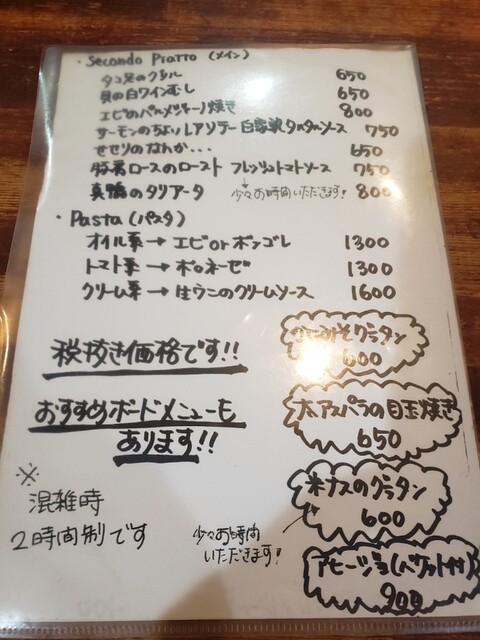 ・Secondo Piatto (メイン)
タコ足のグリル 650
貝の白ワインむし 650
エビのパルメジャーノ焼き 800
サーモンのちょいレアソテー 自家製タルタルソース 750
セセリのなんか... 650
豚肩ロースのロースト フレッシュトマトソース 750
真鴨のタリアータ 少々お時間いただきます! 800
・Pasta (パスタ)
オイル系→エビorボンゴレ 1300
トマト系→ボロネーゼ 1300
クリーム系→生ウニのクリームソース 1600
みそグラタン
600
税抜き価格です!!
太アスパラの目玉焼き
650
おすすめボードメニューも
あります!!
米ナスのグラタン
600
※
混雑時
2時間制です
少々お時間
いただきます!
アヒージョ(バゲット付)
900